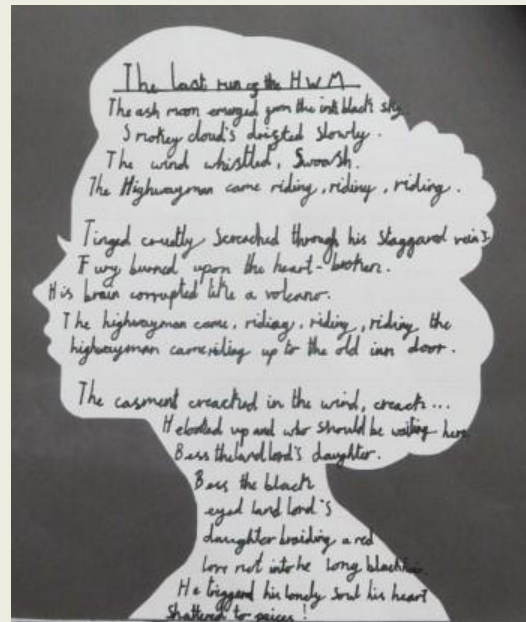 The last run of the HWM
The ash moon emerged from the ink black sky.
Smokey cloud's drigted slowly.
The wind whistled, Swoosh.
The Highwayman came riding, riding, riding.
Tinged cruelly screached through his staggared veins.
Fury burned upon the heart-broken.
His brain corrupted like a volcano.
The highwayman came, riding, riding, riding the
highwayman came riding up to the old inn door.
The casment creacked in the wind, creack...
He looked up and who should be waiting here
Bess the landlord's daughter.
Bess the black
eyed land lord's
daughter braiding a red
love not into he long black
He triggerd his lonely soul his heart
Shattered to peices!